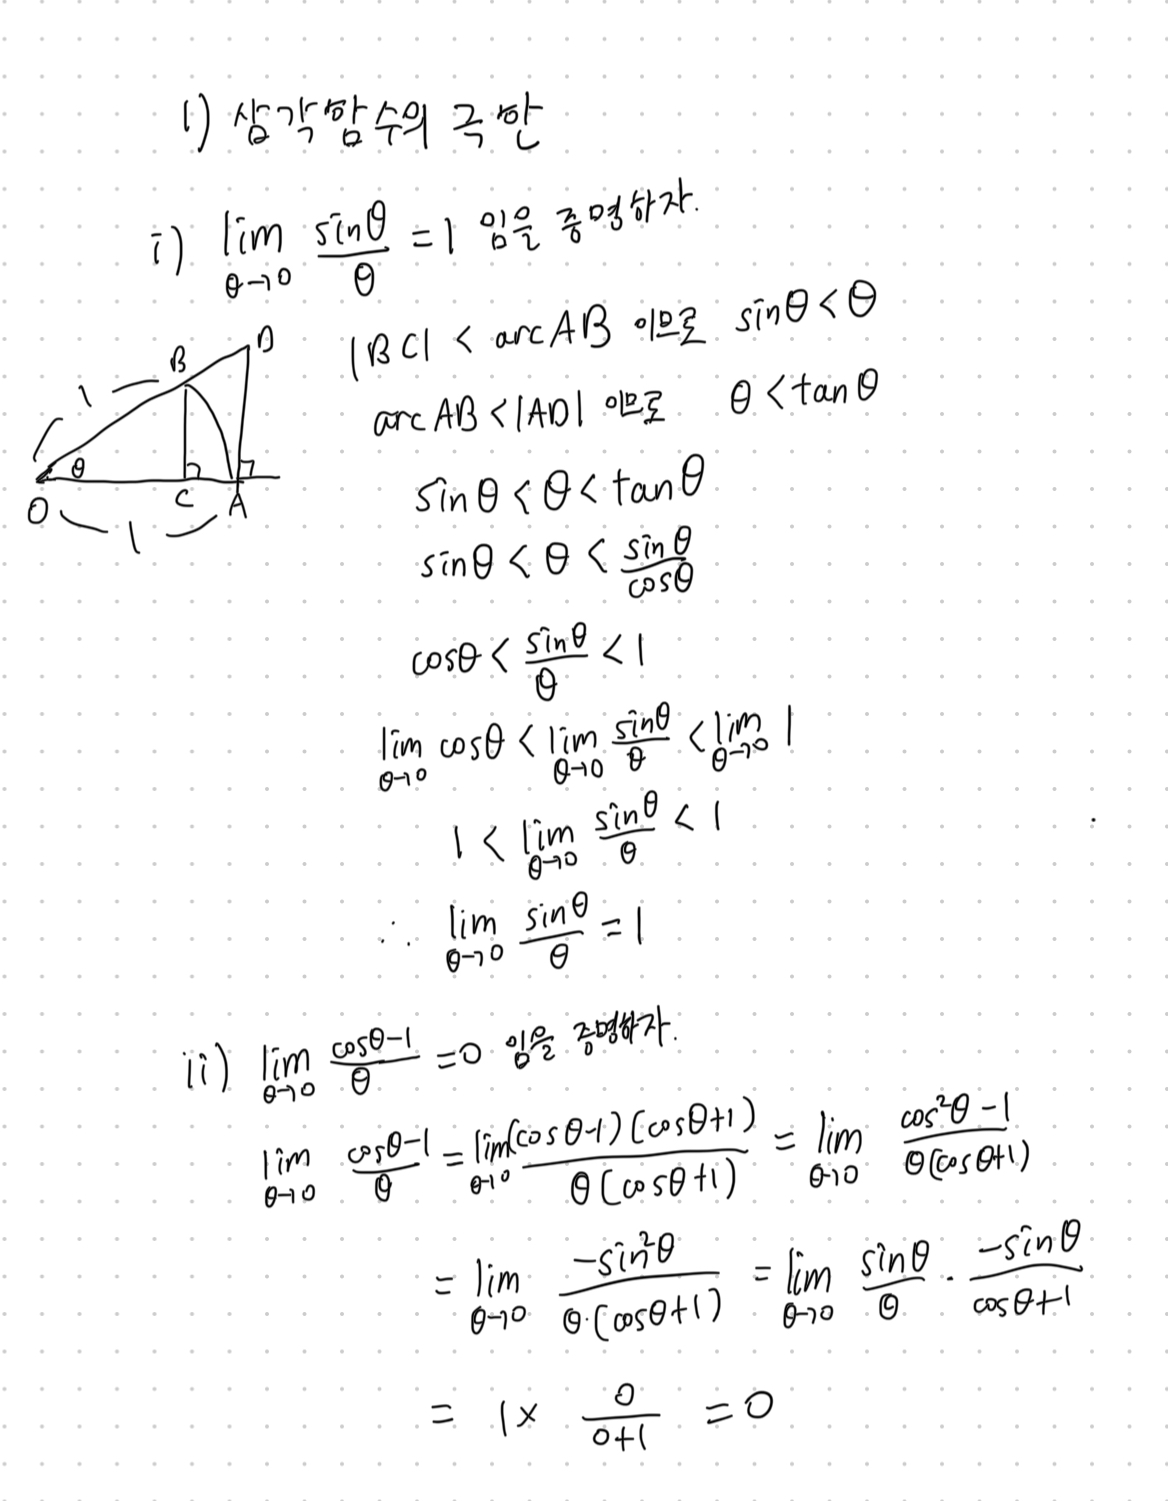 1) 삼각함수의 극한
i) lim θ→0 sinθ/θ = 1 임을 증명하자.
|BC| < arc AB 이므로 sinθ < θ
arc AB < |AD| 이므로 θ < tanθ
1 B D
θ
O C A
1
sinθ < θ < tanθ
sinθ < θ < sinθ/cosθ
cosθ < sinθ/θ < 1
lim θ→0 cosθ < lim θ→0 sinθ/θ < lim θ→0 1
1 < lim θ→0 sinθ/θ < 1
∴ lim θ→0 sinθ/θ = 1
ii) lim θ→0 cosθ-1/θ = 0 임을 증명하자.
lim θ→0 cosθ-1/θ = lim θ→0 (cosθ-1)(cosθ+1)/θ(cosθ+1) = lim θ→0 cos²θ-1/θ(cosθ+1)
= lim θ→0 -sin²θ/θ·(cosθ+1) = lim θ→0 sinθ/θ · -sinθ/cosθ+1
= 1 × 0/0+1 = 0